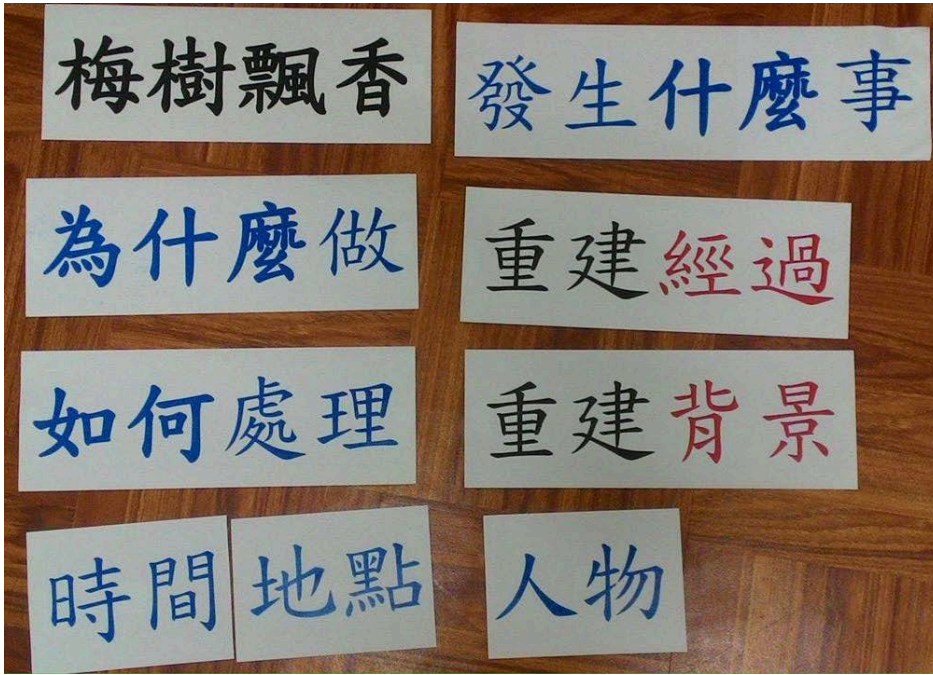 梅樹飄香
發生什麼事
為什麼做
重建經過
如何處理
重建背景
時間
地點
人物